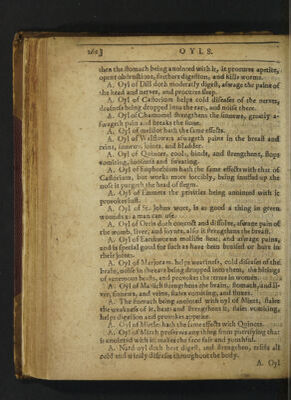 OYLS.
then the stomach being anointed with it, it procures apetite,
opens obstructions, furthers digestion, and kills worms.
A. Oyl of Dill doth moderatly digest, asswage the paine of
the head and nerves, and procures sleep.
A. Oyl of Castorium helps cold diseases of the nerves,
deafness being dropped into the ears, and noise there.
A. Oyl of Chamomel strengthens the sinnews, greatly a-
swageth pain and breaks the stone.
A. Oyl of melilot hath the same effects.
A. Oyl of Wallflowers aswageth paine in the breast and
reins, sinnews, joints, and bladder.
A. Oyl of Quinces, cools, binds, and strengthens, stops
vomiting, loosness and sweating.
A. Oyl of Euphorbium hath the same effects with that of
Castorium, but works more forcibly, being snuffed up the
nose it purgeth the head of flegm.
A. Oyl of Emmets the privities being anointed with it
provokes lust.
A. Oyl of St. Johns wort, is as good a thing in green
wounds as a man can use.
A. Oyl of Orris doth concoct and dissolve, aswage pain of
the womb, liver, and joynts, also it strengthens the breast.
A. Oyl of Earthworms mollifie heat, and aswage pains,
and is special good for such as have been bruised or hurt in
their joints.
A. Oyl of Marjoram helps wearines, cold diseases of the
brain, noise in the ears being dropped into them, the bitings
of venemous beasts, and provokes the terms in women.
A. Oyl of Mastich strengthens the brain, stomach, and li-
ver, sinnews, and veins, staies vomiting, and fluxes.
A. The stomach being anointed with oyl of Mints, staies
the weakness of it, heats and strengthens it, staies vomiting,
helps digestion and provokes appetite.
A. Oyl of Mirtles hath the same effects with Quinces.
A. Oyl of Mirrh preserves any thing from putrifying that
is anointed with it, makes the face fair and youthful.
A. Nard oyl doth heat, digest, and strengthen, resists all
cold and windy diseases throughout the body.
A. Oyl